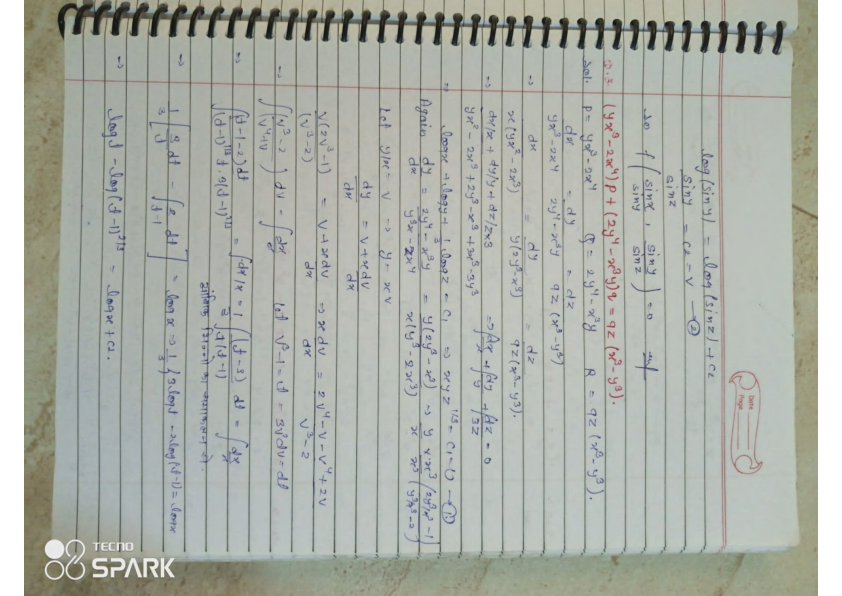 Date
Page
log(siny) = log(sinz) + c₂
siny/sinz = c₂ = v —②
so f(sinx/siny, siny/sinz) = 0
Q.3. (yx³-2x⁴)p + (2y⁴-x³y)q = 9z(x³-y³).
Sol. P = yx³-2x⁴ Q = 2y⁴-x³y R = 9z(x³-y³).
dx/yx³-2x⁴ = dy/2y⁴-x³y = dz/9z(x³-y³)
→ dx/x(yx²-2x³) = dy/y(2y³-x³) = dz/9z(x³-y³).
→ dx/x + dy/y + dz/3z / yx²-2x³+2y³-x³+3x³-3y³ ⇒ ∫dx/x + ∫dy/y + ∫dz/3z = 0
→ logx + logy + 1/3 logz = c₁ ⇒ xyz^1/3 = c₁ = u —①
Again dy/dx = 2y⁴-x³y/y³x-2x⁴ = y(2y³-x³)/x(y³-2x³) ⇒ y/x x³/x³ (2y³/x³-1)/(y³/x³-2)
Let y/x = v ⇒ y = xv
dy/dx = v + xdv/dx
v(2v³-1)/(v³-2) = v + xdv/dx ⇒ xdv/dx = 2v⁴-v-v⁴+2v/v³-2
→ ∫(v³-2/v⁴+v) dv = ∫dx/x let v³-1 = t = 3v²dv = dt
→ ∫(t-1-2)dt/(t-1)^1/3 t.3(t-1)^2/3 = ∫dx/x = 1/3 ∫(t-3)/t(t-1) dt = ∫dx/x
→ 1/3 [∫3/t dt - ∫2/t-1 dt] = logx ⇒ 1/3 {3logt - 2log(t-1) = logx
→ logt - log(t-1)^2/3 = logx + c₂.
TECNO
SPARK